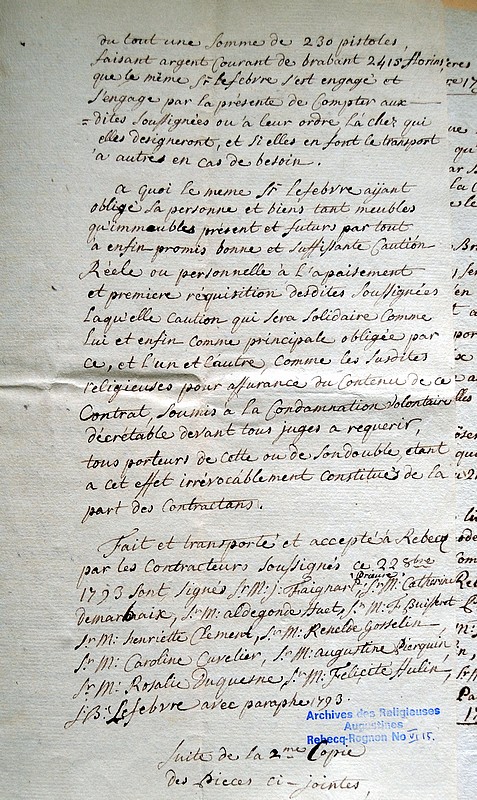 du tout une somme de 230 pistoles,
faisant argent courant de brabant 2415 florins,
que le même Sr. lefebvre s'est engagé et
s'engage par la présente de Compter aux
=dites soussignées ou à leur ordre là chez qui
elles designeront, et si elles en font le transport
à autres en cas de besoin.
a quoi le meme Sr. Lefebvre aijant
obligé sa personne et biens tant meubles
qu'immeubles présent et futurs par tout
à enfin promis bonne et suffissante Caution
Réele ou personnelle à L'apaisement
et premiere réquisition desdites soussignées
Laqu'elle caution qui sera solidaire comme
Lui et enfin comme principale obligée par
ce, et l'un et L'autre, comme les susdites
religieuses pour assurance du Contenu de ce
Contrat, soumis a la Condamnation volontaire
décrétable devant tous juges a requerir,
tous porteurs de cette ou de son double, etant
a cet effet irrévocablement Constitués de la
part des Contractans.
Fait et transporté et accepté à Rebecq
par les Contracteurs soussignés ce 22 8bre
1793 sont signés Sr. M: j: Faignart prieure, Sr. M: Catherine
demarbaix, Sr. M: aldegonde Huet, Sr. M: F: Buisseret
Sr. M: henriette Clement, Sr. M: Renelde Gosselin
Sr. M: Caroline Cuvelier, Sr. M: augustine Pierquin
Sr. M: Rosalie Duquesne, Sr. M: Felicité Hulin,
j: B: Lefebvre avec paraphe 1793.
Archives des Religieuses
Augustines
Rebecq-Rognon No VI 15.
Suite de la 2me Copie
des Pieces ci-jointes,